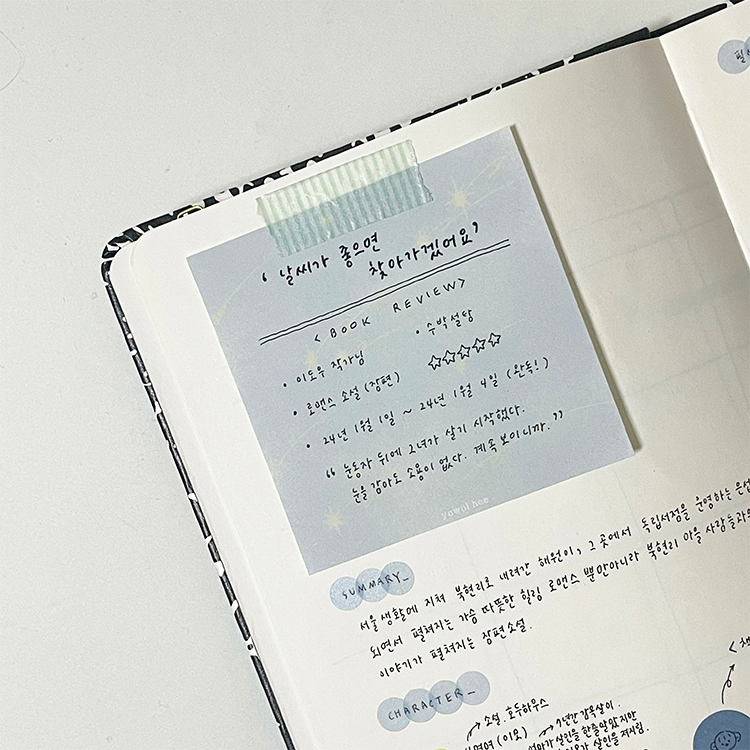 ‘ 날씨가 좋으면
찾아가겠어요’
< BOOK REVIEW >
• 이도우 작가님
• 수박설탕
• 로맨스 소설 (장편)
☆☆☆☆☆
• 24년 1월 1일 ~ 24년 1월 4일 (완독!)
“ 눈동자 뒤에 그녀가 살기 시작했다.
눈을 감아도 소용이 없다. 계속 보이니까. ”
yowol hee
SUMMARY_
서울 생활에 지쳐 북현리로 내려간 해원이, 그 곳에서 독립서점을 운영하는 은섭
되면서 펼쳐지는 가슴 따뜻한 힐링 로맨스 뿐만아니라 북현리 마을 사람들과의
이야기가 펼쳐지는 장편소설.
CHARACTER_
소설. 호두하우스
7년간 감옥살이.
(이모)